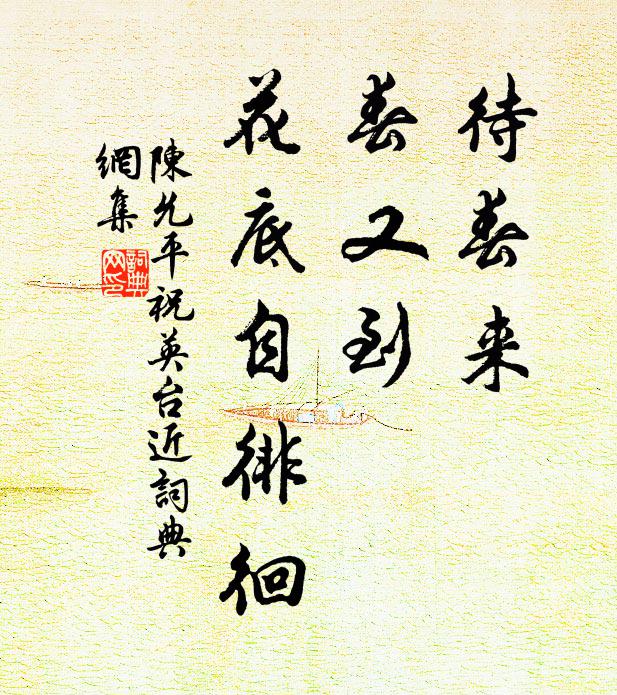 待春来
春又到
花底自徘徊
陳允平祝英台近詞典
網集
詞典网印